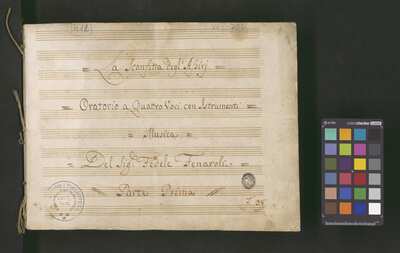 La Sconfitta degl'Assirj
Oratorio a Quattro Voci con Istrumenti
Musica
Del Sig.r Fedele Fenaroli
Parte Prima